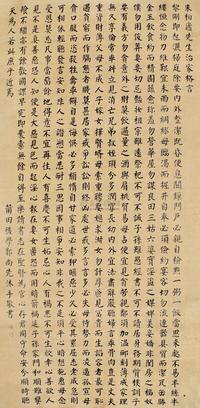 朱柏廬先生治家格言
黎明即起灑掃庭除要內外整潔既昏便息關鎖門戶必親自檢點一粥一飯當思來處不易半絲半
縷恆念物力維艱宜未雨而綢繆毋臨渴而掘井自奉必須儉約宴客切勿流連器具質而潔瓦缶勝
金玉飲食約而精園蔬愈珍饈勿營華屋勿謀良田三姑六婆實淫盜之媒婢美妾嬌非閨房之福奴
僕勿用俊美妻妾切忌豔妝祖宗雖遠祭祀不可不誠子孫雖愚經書不可不讀居身務期質樸訓子
要有義方勿貪意外之財勿飲過量之酒與肩挑貿易毋占便宜見貧苦親鄰須加溫卹刻薄成家理
無久享倫常乖舛立見消亡兄弟叔姪須分多潤寡長幼內外宜法肅辭嚴聽婦言乖骨肉豈是丈夫
重貲財薄父母不成人子嫁女擇佳壻毋索重聘娶媳求淑女勿計厚奩見富貴而生諂容者最可恥
遇貧窮而作驕態者賤莫甚居家戒爭訟訟則終凶處世戒多言言多必失毋恃勢力而凌逼孤寡毋
貪口腹而恣殺牲禽乖僻自是悔誤必多頹惰自甘家道難成狎暱惡少久必受其累屈志老成急則
可相依輕聽發言安知非人之譖愬當忍耐三思因事相爭焉知非我之不是須平心暗想施惠勿念
受恩莫忘凡事當留餘地得意不宜再往人有喜慶不可生妒忌心人有禍患不可生喜幸心善欲人
見不是真善惡恐人知便是大惡見色而起淫心報在妻女匿怨而用暗箭禍延子孫家門和順雖饔
飧不繼亦有餘歡國課早完即囊橐無餘自得至樂讀書志在聖賢為官心存君國守分安命順時聽
天為人若此庶乎近焉
莆田儒學郭尚先沐手敬書